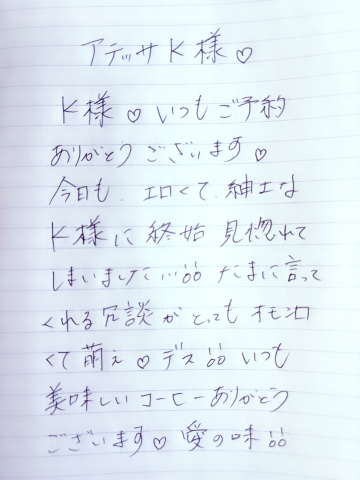 アテッサK様♡
K様♡いつもご予約
ありがとうございます♡
今日も、エロくて、紳士な
K様に終始見惚れて
しまいました…!!! たまに言って
くれる冗談がとってもオモシロ
くて萌え♡デス!! いつも
美味しいコーヒーありがとう
ございます♡愛の味!!